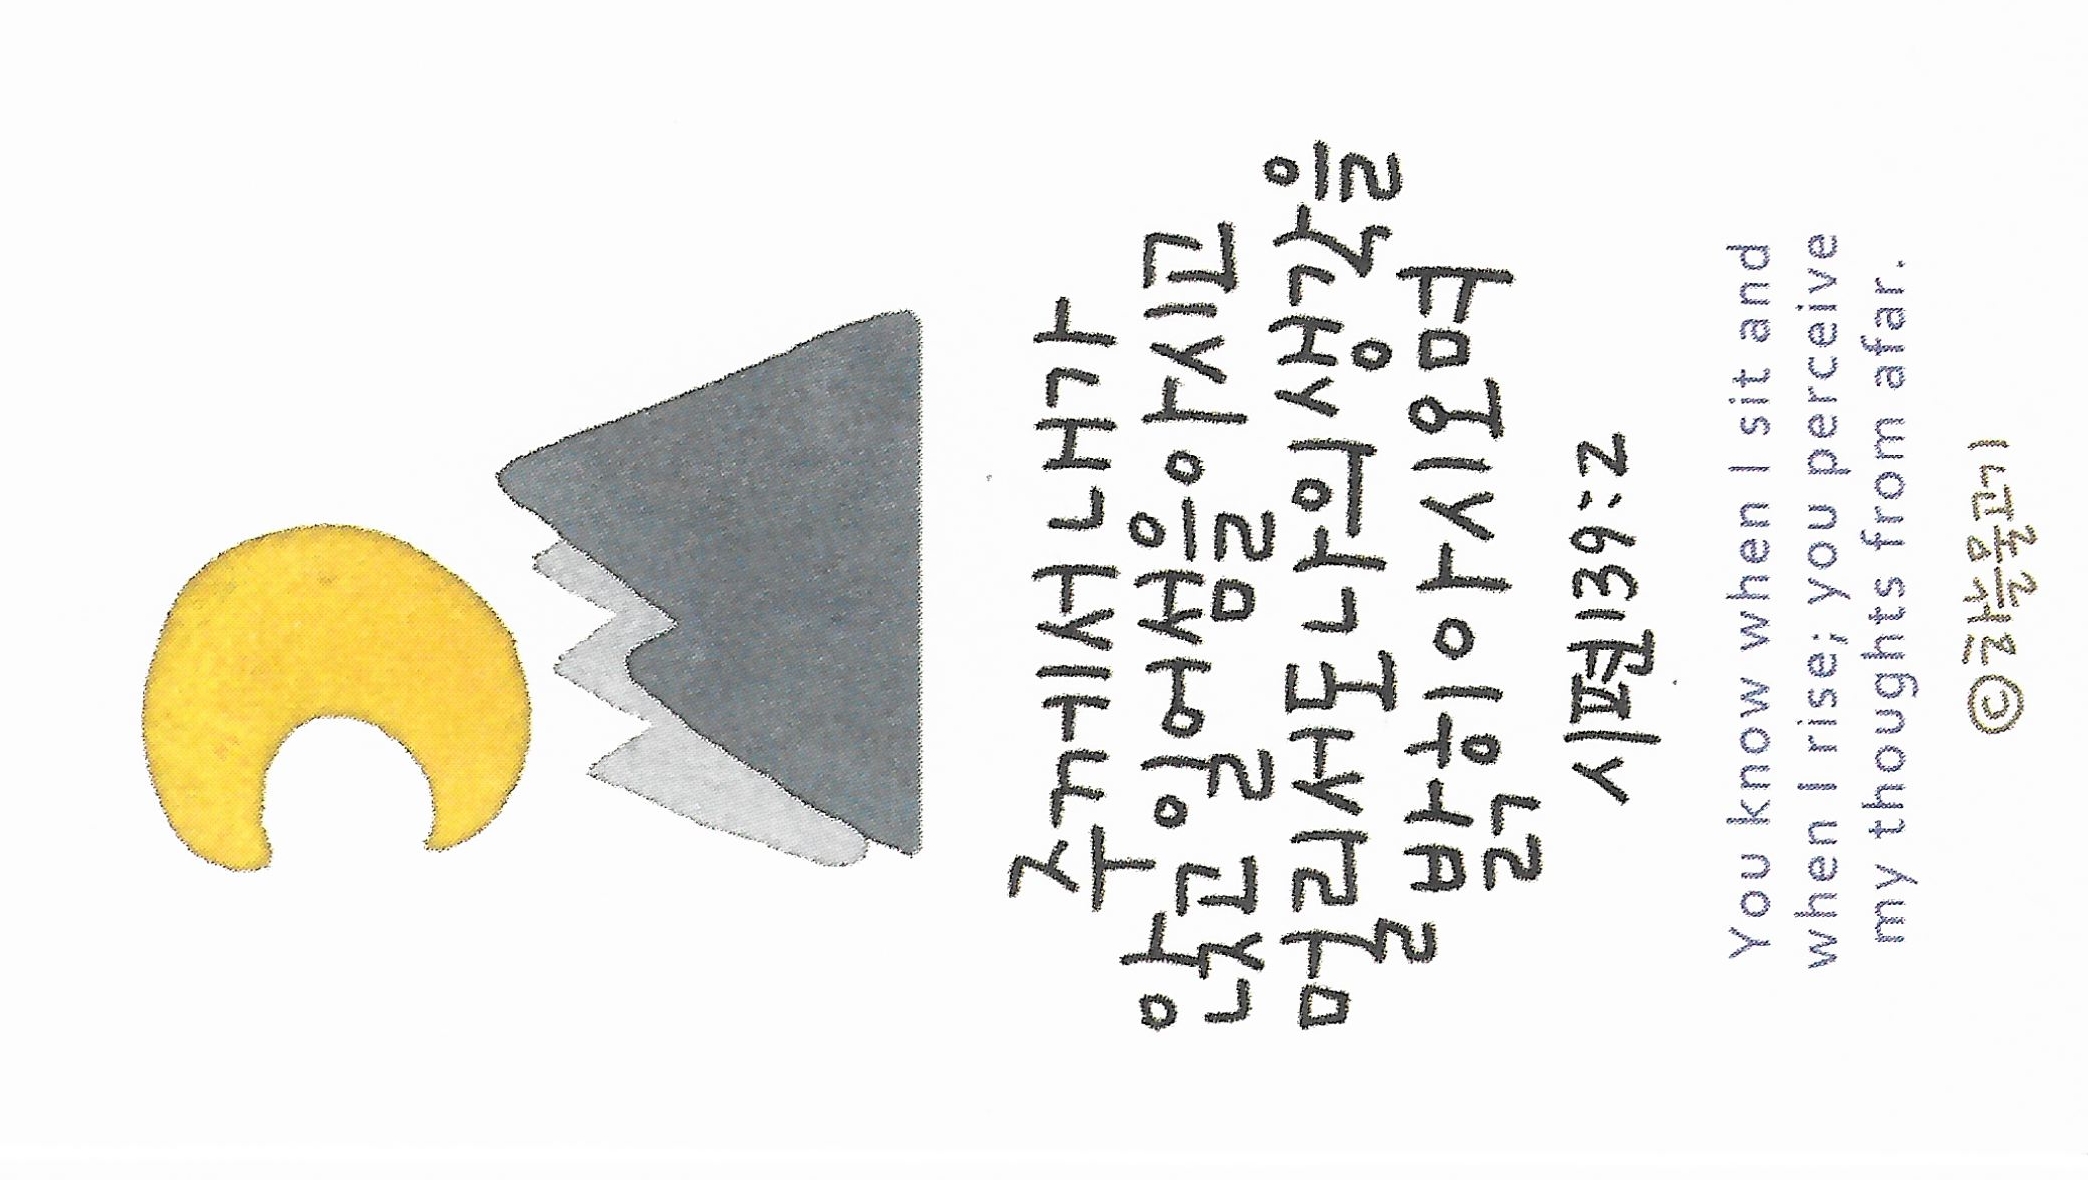 주께서 내가
앉고 일어섬을 아시고
멀리서도 나의 생각을
밝히 아시오며
시편 139:2
You know when I sit and
when I rise; you perceive
my thoughts from afar.
©하늘물고기